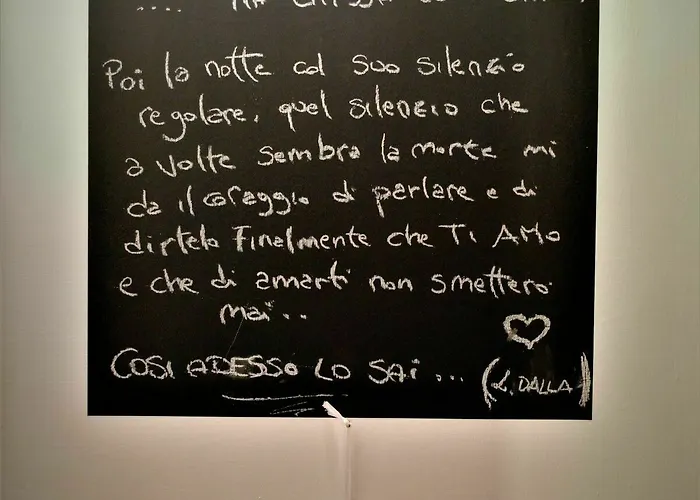 Poi la notte col suo silenzio
regolare, quel silenzio che
a volte sembra la morte mi
da il coraggio di parlare e di
dirtelo finalmente che TI AMO
e che di amarti non smettero
mai..
COSI ADESSO LO SAI... (L. DALLA)